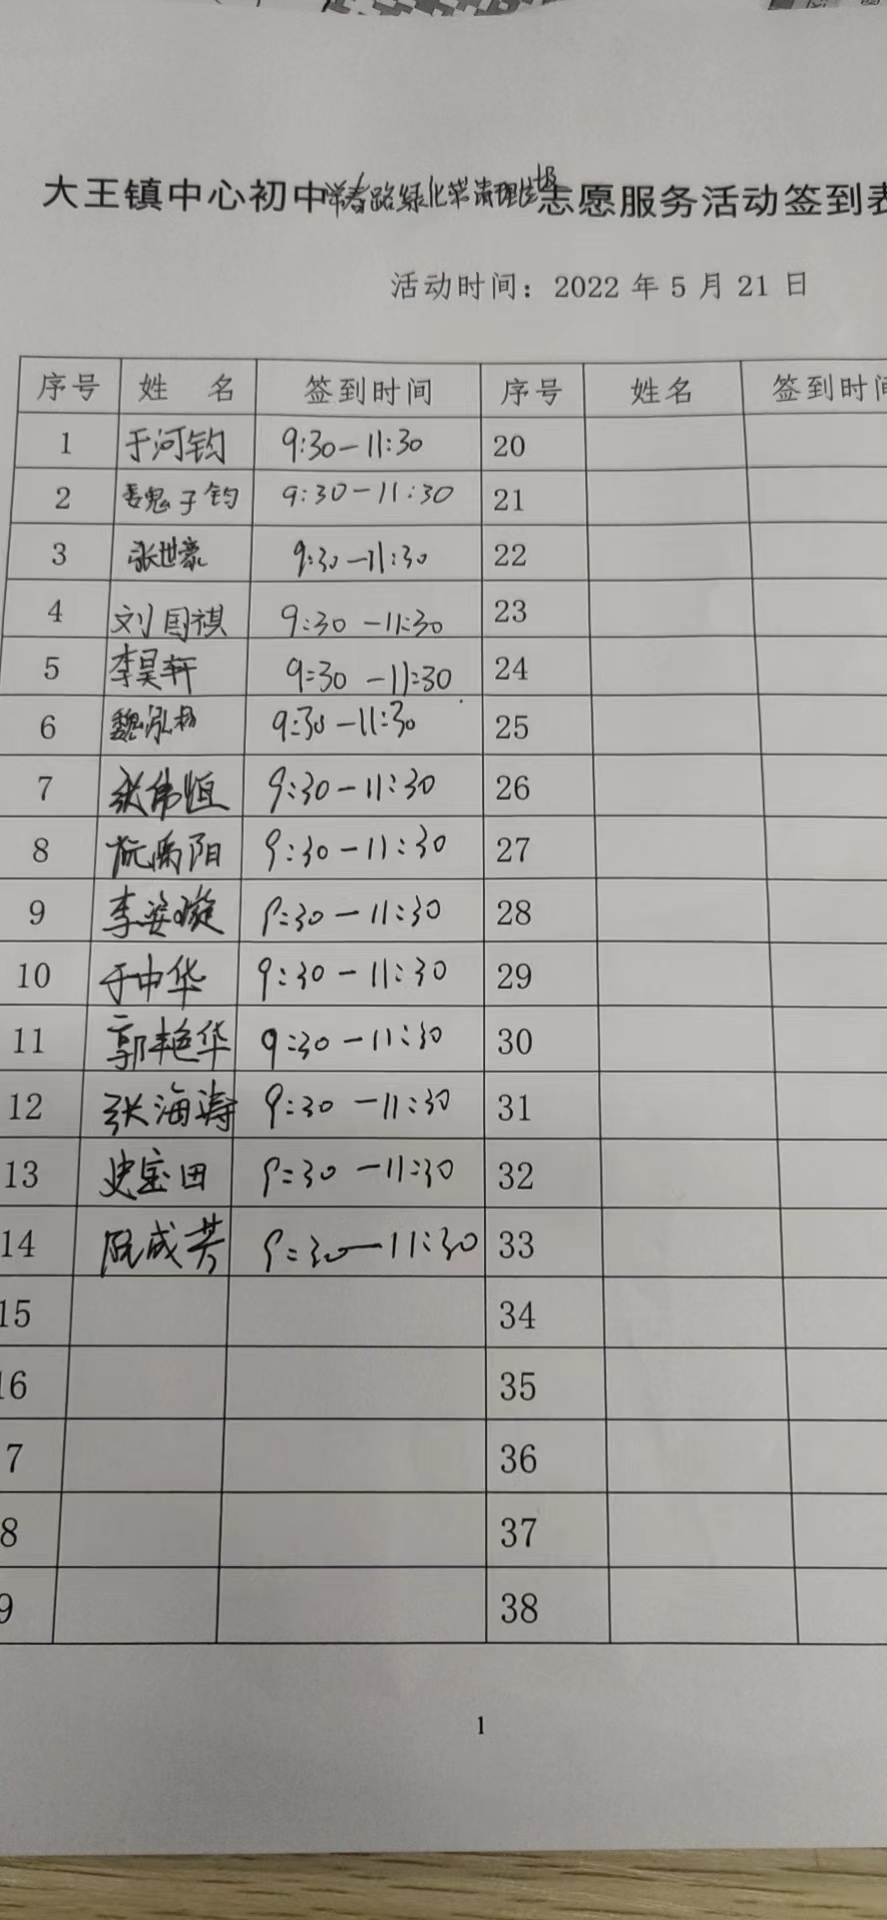 大王镇中心初中常春路绿化带清理垃圾志愿服务活动签到表
活动时间：2022 年 5 月 21 日
序号 姓 名 签到时间 序号 姓名 签到时间
1 于河钧 9:30-11:30 20
2 魏子钧 9:30-11:30 21
3 张世豪 9:30-11:30 22
4 刘国祺 9:30-11:30 23
5 李昊轩 9:30-11:30 24
6 魏泓 9:30-11:30 25
7 张伟恒 9:30-11:30 26
8 阮禹阳 9:30-11:30 27
9 李姿璇 9:30-11:30 28
10 于中华 9:30-11:30 29
11 郭艳华 9:30-11:30 30
12 张海涛 9:30-11:30 31
13 史宝田 9:30-11:30 32
14 阮成芳 9:30-11:30 33
15 34
16 35
7 36
8 37
9 38
1